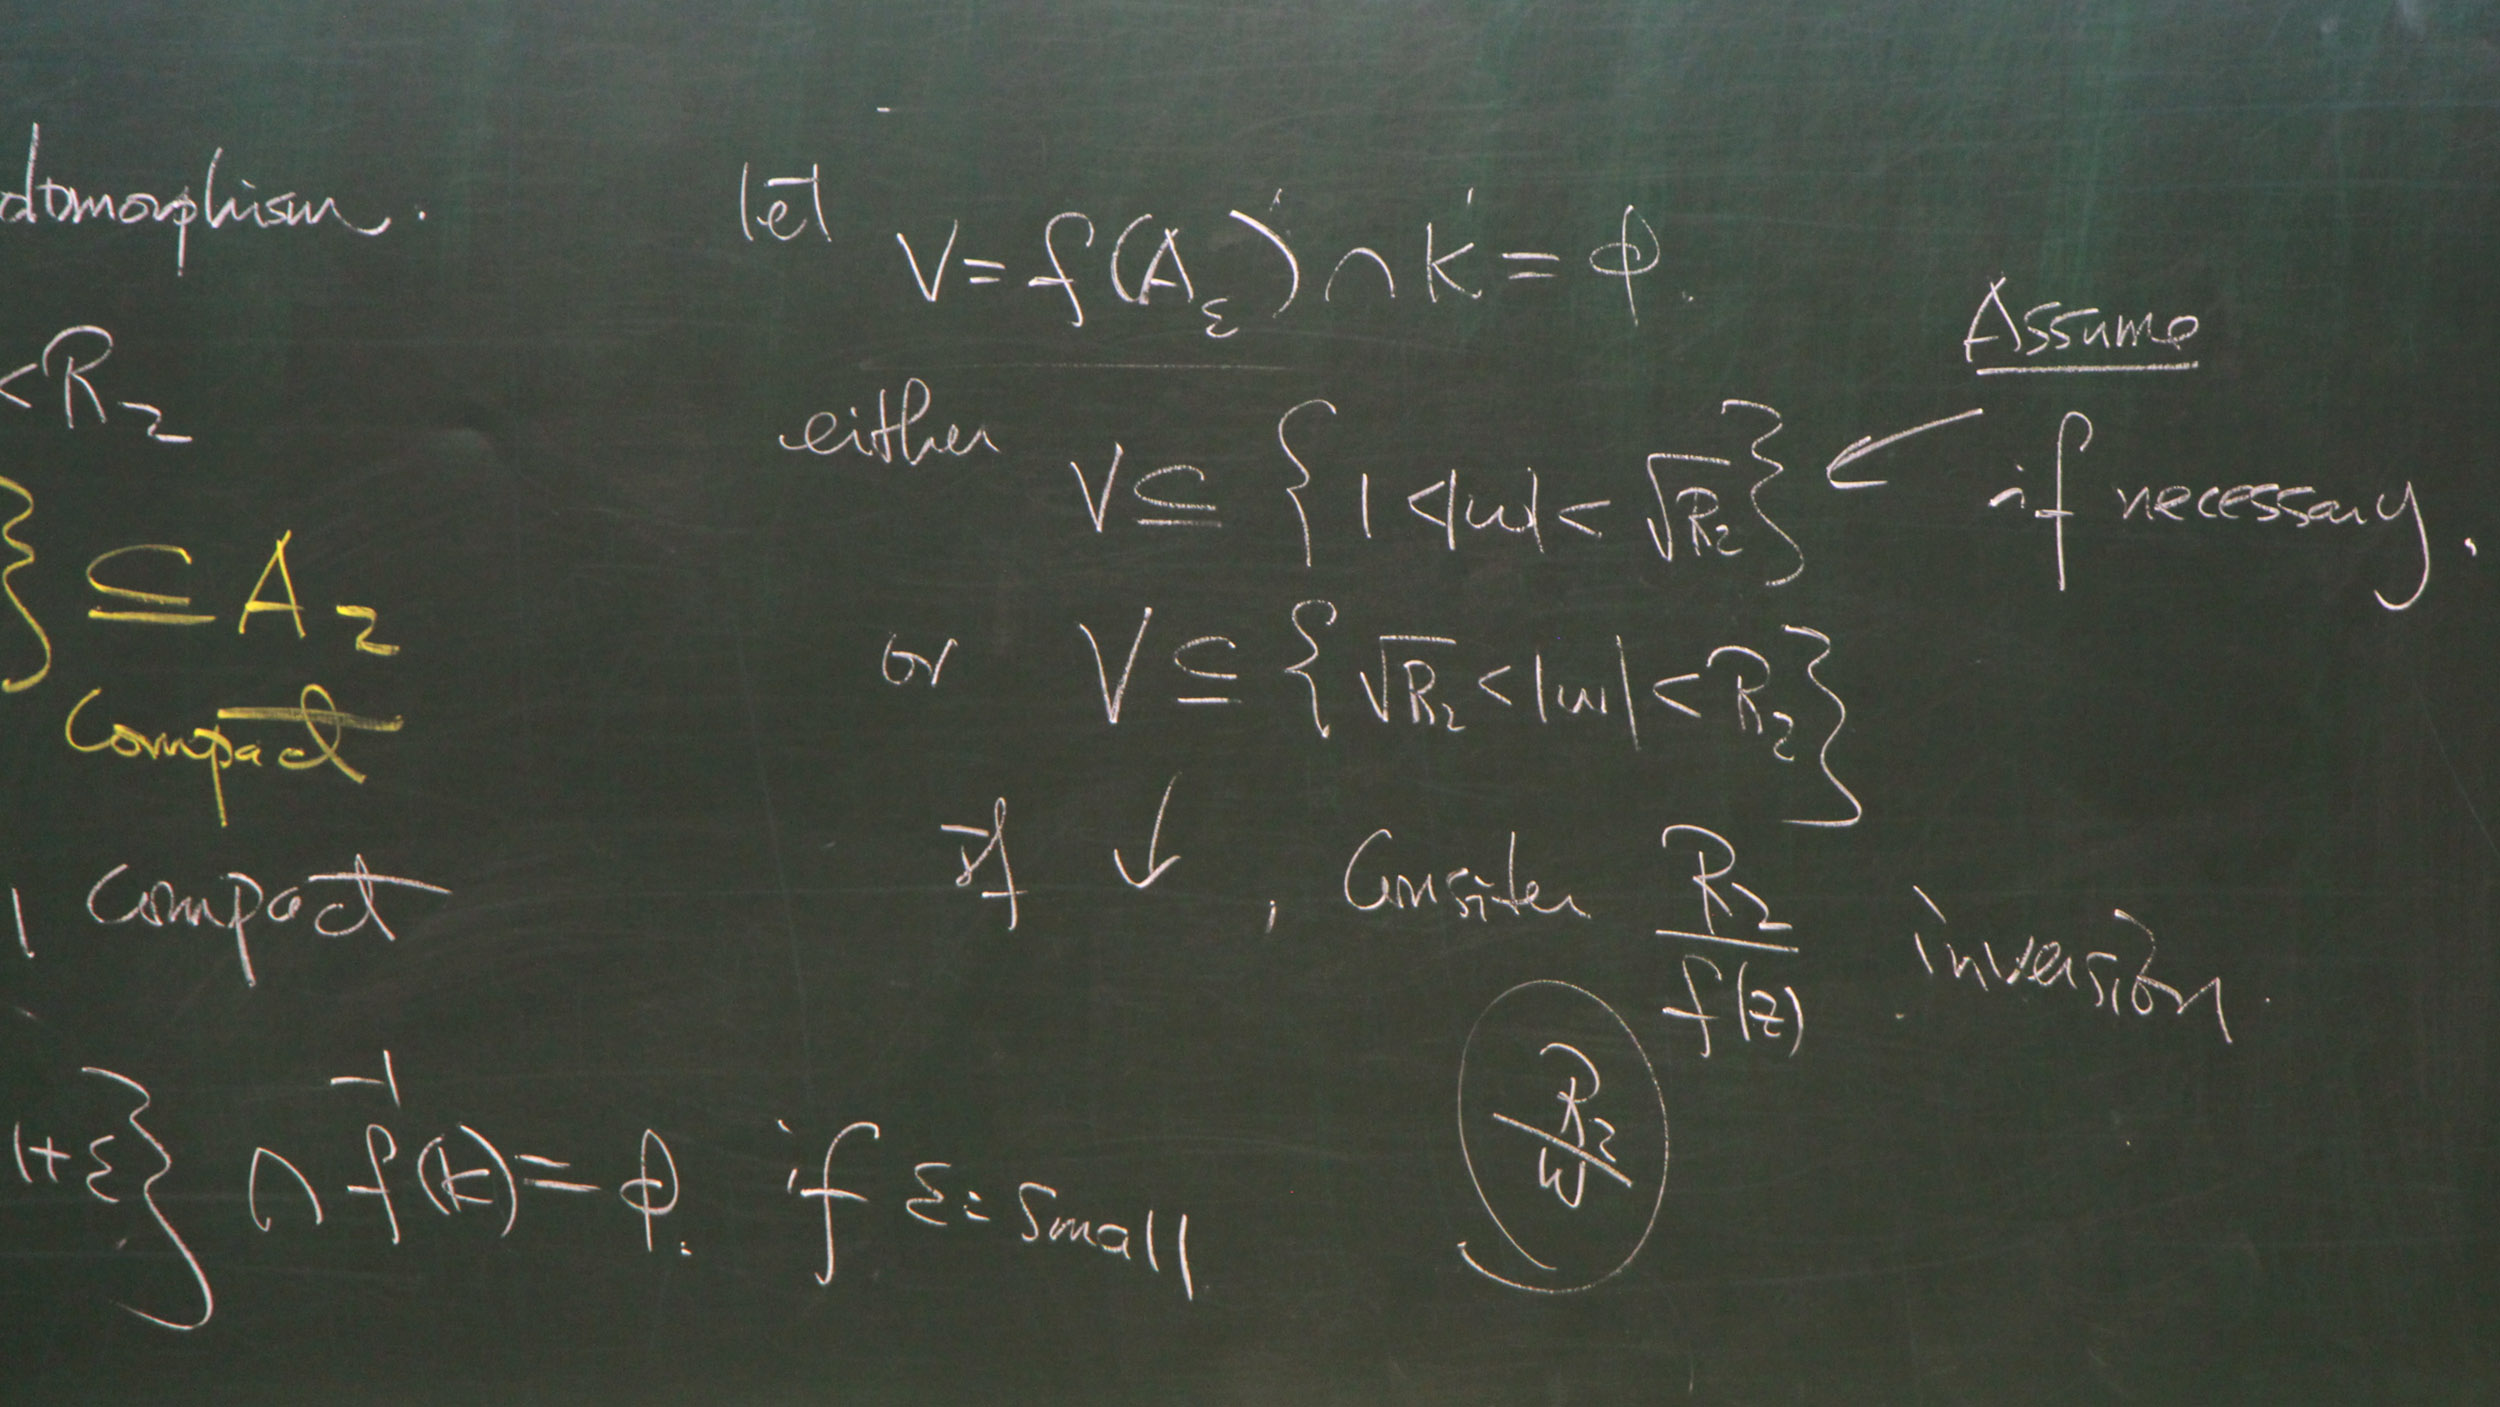 dtomorphism.
< R₂
} ⊆ A₂
Compact
1 Compact
1+ε} ∩ f⁻¹(K) = φ. if ε: small
let
V = f(A_ε) ∩ K = φ.
Assume
either V ⊆ {1 < |w| < √R₂} ← if necessary.
or V ⊆ {√R₂ < |w| < R₂}
If ↓, Consider R₂/f(z) inversion.
R₂/w